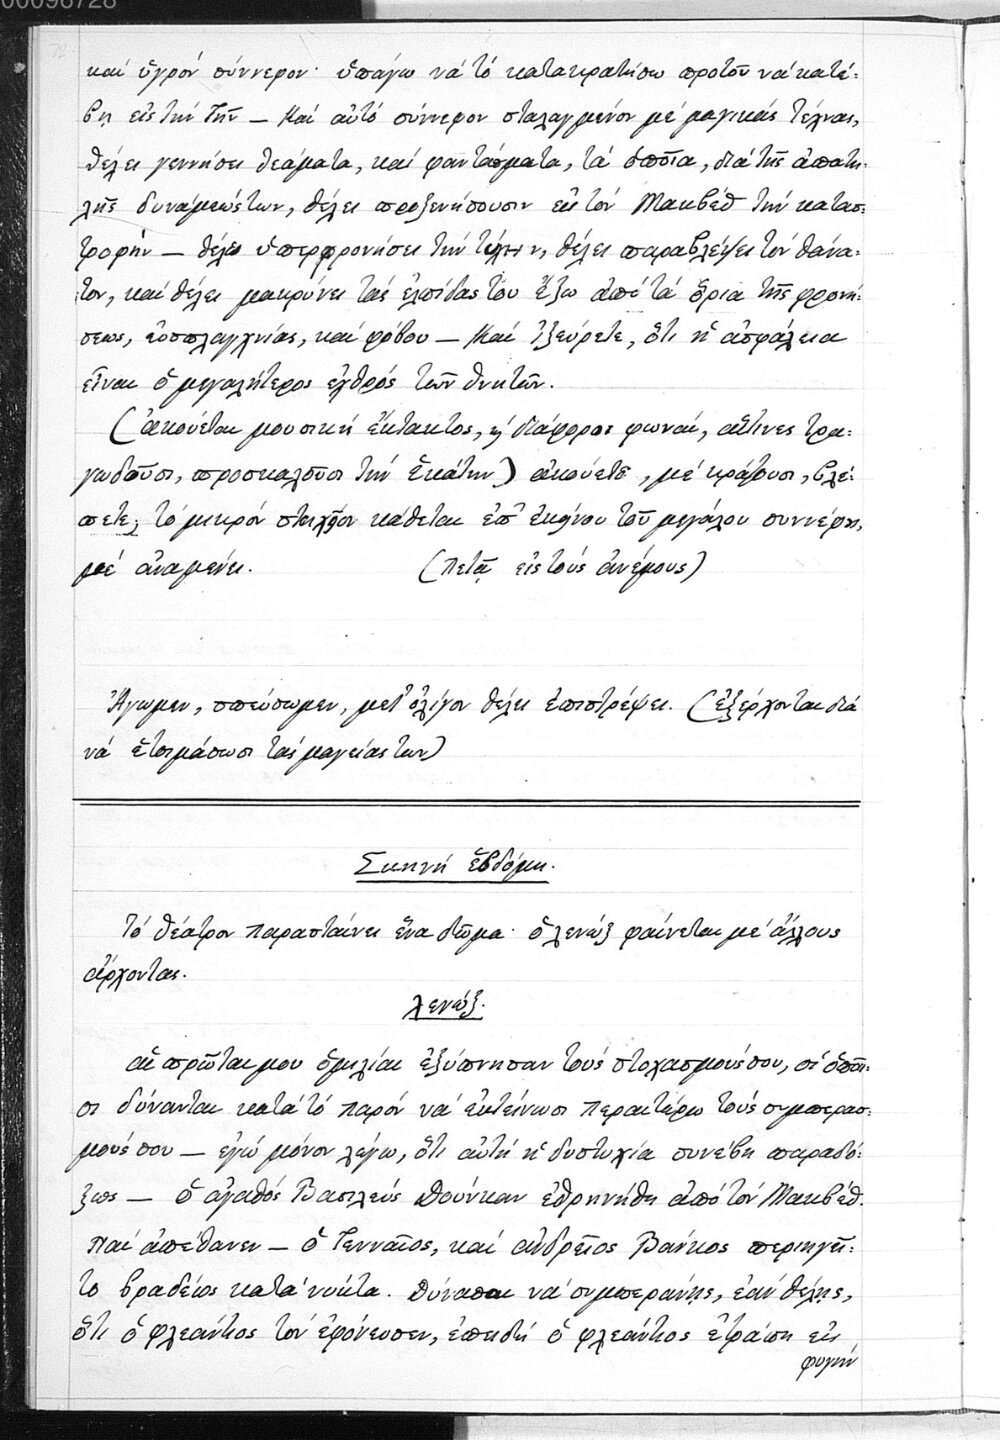 00096728
72
καί ὑγρόν σύννεφον· ὑπάγω νά τό κατακρατήσω προτοῦ νά κατέ-
βῃ εἰς τήν Γῆν — Καί αὐτό σύννεφον σταλαγμένον μέ μαγικάς τέχνας,
θέλει γεννήσει θεάματα, καί φαντάσματα, τά ὁποῖα, διά τῆς ἀπατη-
λῆς δυνάμεώς των, θέλει προξενήσουσιν εἰς τόν Μακβέθ τήν κατασ-
τροφήν — θέλει ὑπερφρονήσει τήν τύχην, θέλει παραβλέψει τόν θάνα-
τον, καί θέλει μακρύνει τάς ἐλπίδας του ἔξω ἀπό τά ὅρια τῆς φρονή-
σεως, εὐσπλαγχνίας, καί φόβου — Καί ἠξεύρετε, ὅτι ἡ ἀσφάλεια
εἶναι ὁ μεγαλήτερος ἐχθρός τῶν θνητῶν.
(ἀκούεται μουσική ἔκτακτος, ἡ διάφοροι φωναί, αἵτινες τρα-
γωδοῦσι, προσκαλοῦσι τήν Ἑκάτην) ἀκούετε, μέ κράζουσι, βλέ-
πετε, τό μικρόν στοιχεῖον κάθεται ἐπ' ἐκείνου τοῦ μεγάλου συννέφου,
μέ ἀναμένει. (πετᾷ εἰς τούς ἀνέμους)
Ἄγωμεν, σπεύσωμεν, μετ' ὀλίγον θέλει ἐπιστρέψει. (ἐξέρχονται διά
νά ἑτοιμάσωσι τάς μαγείας των)
Σκηνή ἑβδόμη.
Τό θέατρον παρασταίνει ἕνα δῶμα· ὁ λενώξ φαίνεται μέ ἄλλους
ἄρχοντας.
λενώξ.
αἱ πρῶται μου ὁμιλίαι ἐξύπνησαν τούς στοχασμούς σου, οἱ ὁποῖ-
οι δύνανται κατά τό παρόν νά ἐκτείνωσι περαιτέρω τούς συμπερασ-
μούς σου — ἐγώ μόνον λέγω, ὅτι αὐτή ἡ δυστυχία συνέβη παραδό-
ξως — ὁ ἀγαθός Βασιλεύς Δούνκαν ἐθρηνήθη ἀπό τόν Μακβέθ.
καί ἀπέθανεν — ὁ Γενναῖος, καί ἀνδρεῖος Βάνκος περιηγεῖ-
το βραδείως κατά νύκτα. Δύνασαι νά συμπεράνῃς, ἐάν θέλῃς,
ὅτι ὁ φλεάντιος τόν ἐφόνευσεν, ἐπειδή ὁ φλεάντιος ἐτράπη εἰς
φυγήν